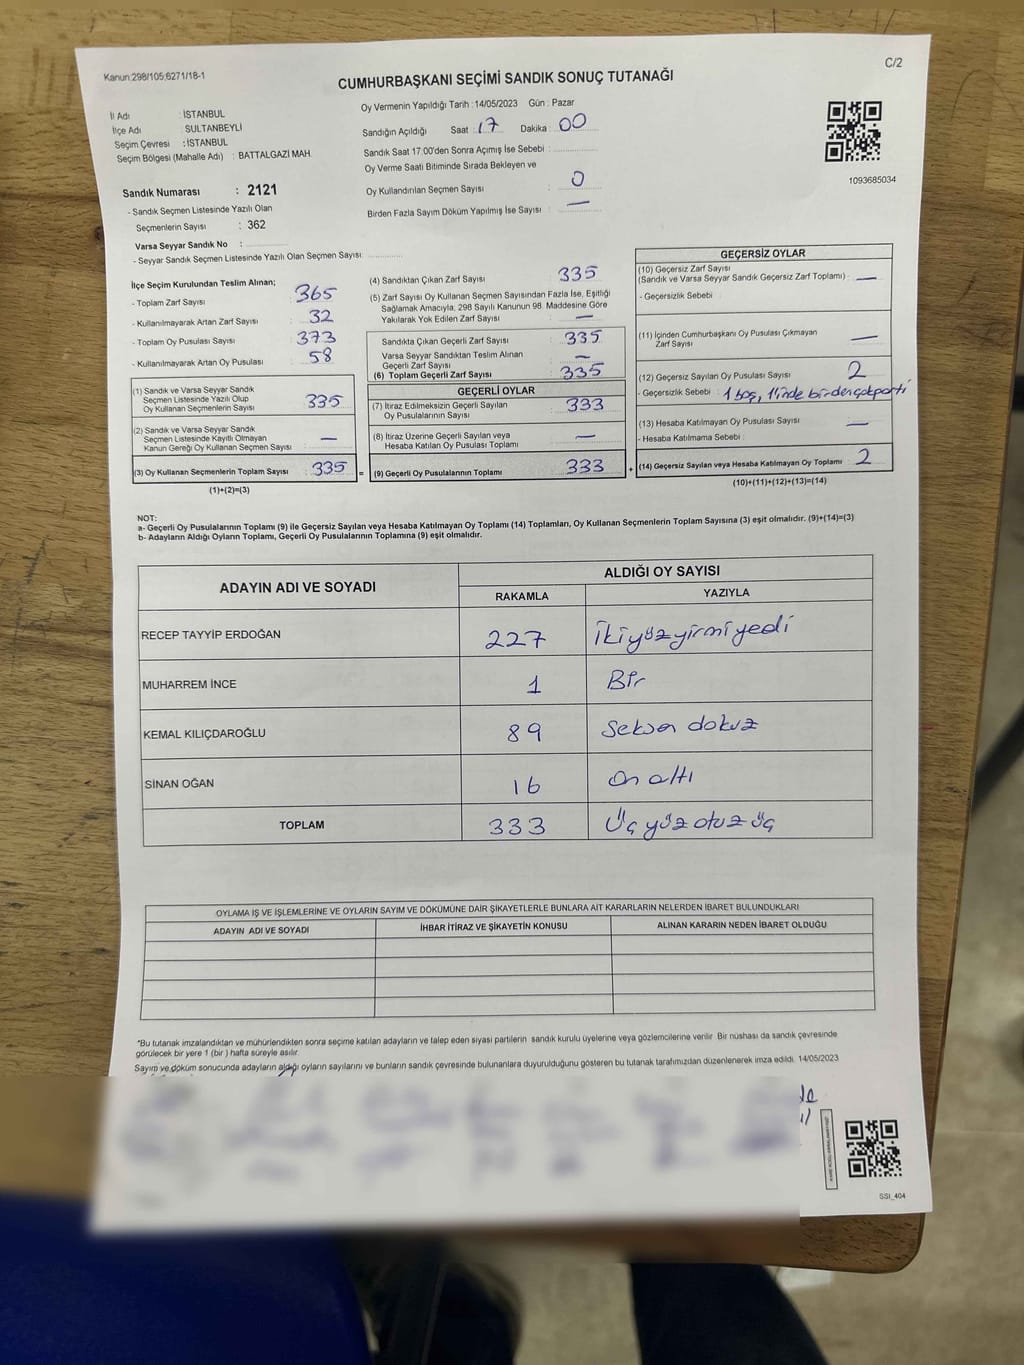 Kanun:298/105;6271/18-1
C/2
CUMHURBAŞKANI SEÇİMİ SANDIK SONUÇ TUTANAĞI
İl Adı : İSTANBUL
İlçe Adı : SULTANBEYLİ
Seçim Çevresi : İSTANBUL
Seçim Bölgesi (Mahalle Adı) : BATTALGAZİ MAH.
Sandık Numarası : 2121
- Sandık Seçmen Listesinde Yazılı Olan
Seçmenlerin Sayısı : 362
Varsa Seyyar Sandık No :
- Seyyar Sandık Seçmen Listesinde Yazılı Olan Seçmen Sayısı
Oy Vermenin Yapıldığı Tarih : 14/05/2023 Gün : Pazar
Sandığın Açıldığı Saat : 17 Dakika : 00
Sandık Saat 17:00'den Sonra Açılmış İse Sebebi :
Oy Verme Saati Bitiminde Sırada Bekleyen ve
Oy Kullandırılan Seçmen Sayısı : 0
Birden Fazla Sayım Döküm Yapılmış İse Sayısı : —
1093685034
İlçe Seçim Kurulundan Teslim Alınan;
- Toplam Zarf Sayısı : 365
- Kullanılmayarak Artan Zarf Sayısı : 32
- Toplam Oy Pusulası Sayısı : 373
- Kullanılmayarak Artan Oy Pusulası : 58
(1) Sandık ve Varsa Seyyar Sandık
Seçmen Listesinde Yazılı Olup
Oy Kullanan Seçmenlerin Sayısı : 335
(2) Sandık ve Varsa Seyyar Sandık
Seçmen Listesinde Kayıtlı Olmayan
Kanun Gereği Oy Kullanan Seçmen Sayısı : —
(3) Oy Kullanan Seçmenlerin Toplam Sayısı : 335 =
(1)+(2)=(3)
(4) Sandıktan Çıkan Zarf Sayısı : 335
(5) Zarf Sayısı Oy Kullanan Seçmen Sayısından Fazla İse, Eşitliği
Sağlamak Amacıyla, 298 Sayılı Kanunun 98. Maddesine Göre
Yakılarak Yok Edilen Zarf Sayısı : —
Sandıkta Çıkan Geçerli Zarf Sayısı : 335
Varsa Seyyar Sandıktan Teslim Alınan
Geçerli Zarf Sayısı : —
(6) Toplam Geçerli Zarf Sayısı : 335
GEÇERLİ OYLAR
(7) İtiraz Edilmeksizin Geçerli Sayılan
Oy Pusulalarının Sayısı : 333
(8) İtiraz Üzerine Geçerli Sayılan veya
Hesaba Katılan Oy Pusulası Toplamı : —
(9) Geçerli Oy Pusulalarının Toplamı : 333 +
GEÇERSİZ OYLAR
(10) Geçersiz Zarf Sayısı
(Sandık ve Varsa Seyyar Sandık Geçersiz Zarf Toplamı) : —
- Geçersizlik Sebebi :
(11) İçinden Cumhurbaşkanı Oy Pusulası Çıkmayan
Zarf Sayısı : —
(12) Geçersiz Sayılan Oy Pusulası Sayısı : 2
- Geçersizlik Sebebi : 1 boş, 1'inde birden çok parti
(13) Hesaba Katılmayan Oy Pusulası Sayısı : —
- Hesaba Katılmama Sebebi :
(14) Geçersiz Sayılan veya Hesaba Katılmayan Oy Toplamı : 2
(10)+(11)+(12)+(13)=(14)
NOT:
a- Geçerli Oy Pusulalarının Toplamı (9) ile Geçersiz Sayılan veya Hesaba Katılmayan Oy Toplamı (14) Toplamları, Oy Kullanan Seçmenlerin Toplam Sayısına (3) eşit olmalıdır. (9)+(14)=(3)
b- Adayların Aldığı Oyların Toplamı, Geçerli Oy Pusulalarının Toplamına (9) eşit olmalıdır.
ADAYIN ADI VE SOYADI
ALDIĞI OY SAYISI
RAKAMLA YAZIYLA
RECEP TAYYİP ERDOĞAN 227 İkiyüzyirmiyedi
MUHARREM İNCE 1 Bir
KEMAL KILIÇDAROĞLU 89 Seksen dokuz
SİNAN OĞAN 16 On altı
TOPLAM 333 Üç yüz otuz üç
OYLAMA İŞ VE İŞLEMLERİNE VE OYLARIN SAYIM VE DÖKÜMÜNE DAİR ŞİKAYETLERLE BUNLARA AİT KARARLARIN NELERDEN İBARET BULUNDUKLARI
ADAYIN ADI VE SOYADI İHBAR İTİRAZ VE ŞİKAYETİN KONUSU ALINAN KARARIN NEDEN İBARET OLDUĞU
*Bu tutanak imzalandıktan ve mühürlendikten sonra seçime katılan adayların ve talep eden siyasi partilerin sandık kurulu üyelerine veya gözlemcilerine verilir. Bir nüshası da sandık çevresinde
görülecek bir yere 1 (bir ) hafta süreyle asılır.
Sayım ve döküm sonucunda adayların aldığı oyların sayılarını ve bunların sandık çevresinde bulunanlara duyurulduğunu gösteren bu tutanak tarafımızdan düzenlenerek imza edildi. 14/05/2023
SSI_404